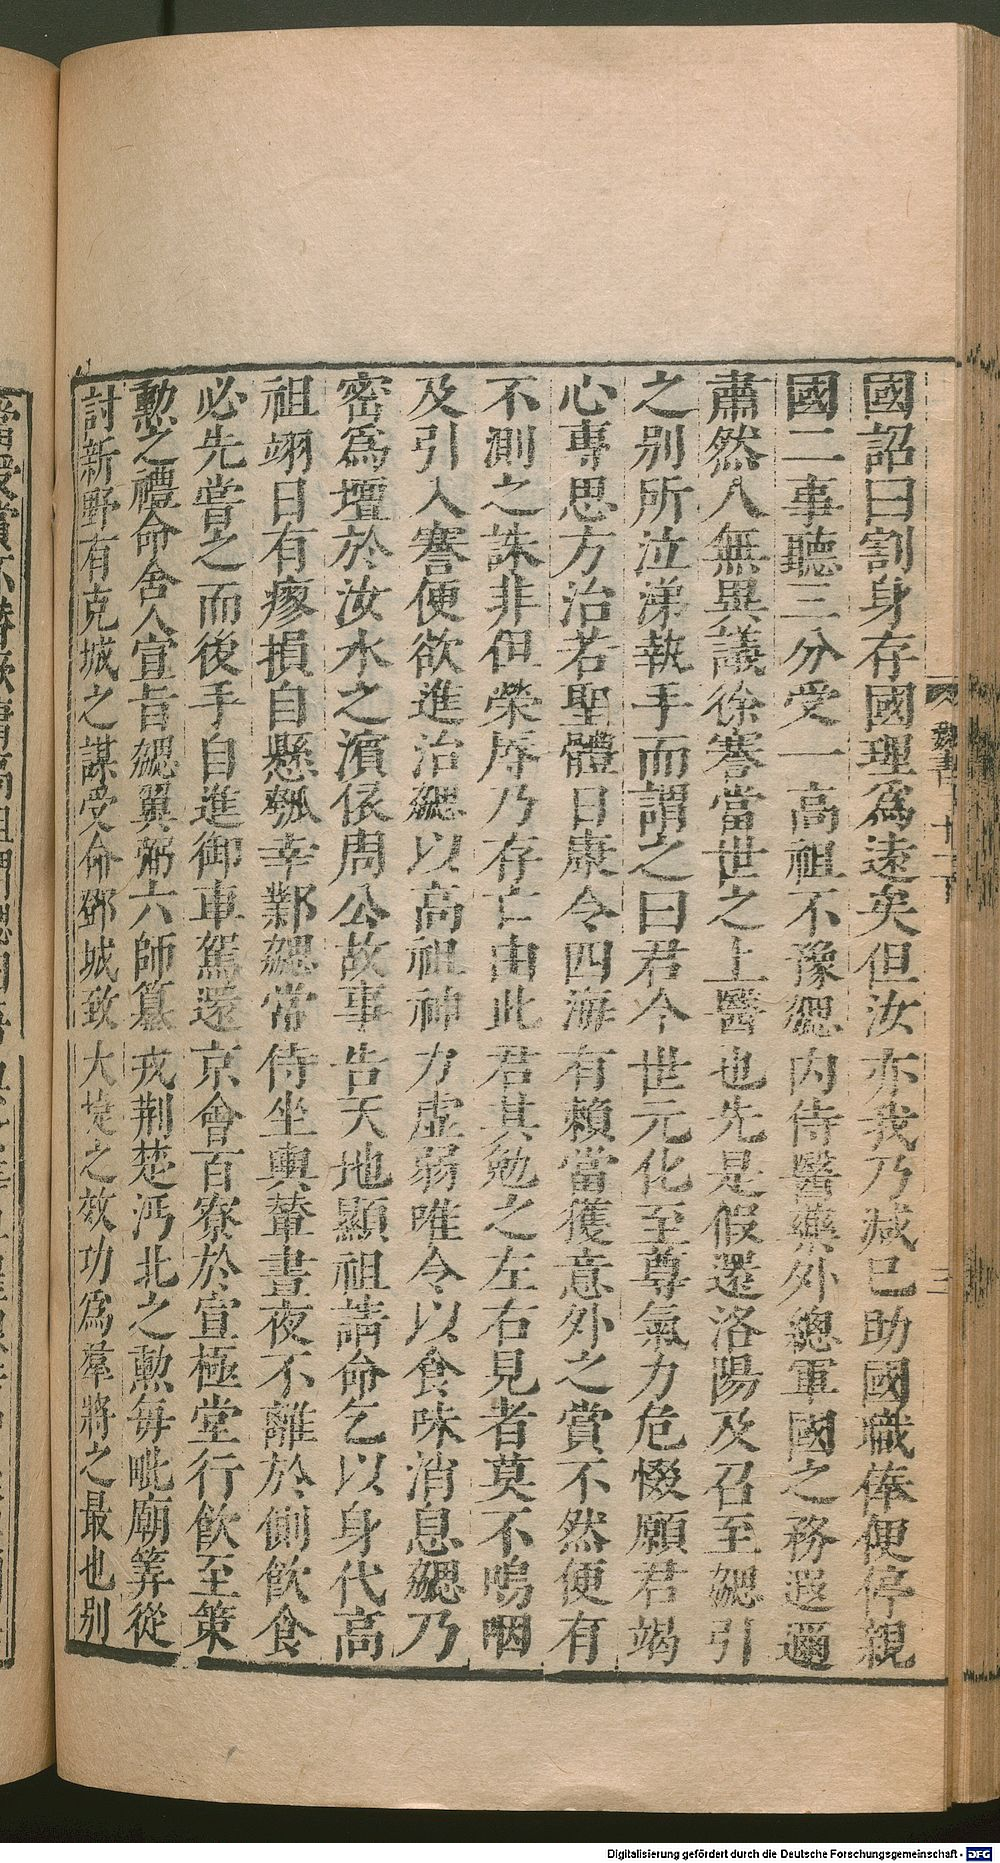 國詔曰割身存國理爲遠矣但汝亦我乃减己助國職俸便停親
國二事聽三分受一高祖不豫勰内侍醫藥外總軍國之務遐邇
肅然人無異議徐謇當世之上醫也先是假還洛陽及召至勰引
之别所泣涕執手而謂之曰君今世元化至尊氣力危惙願君竭
心專思方治若聖體日康令四海有賴當獲意外之賞不然便有
不測之誅非但榮辱乃存亡由此君其勉之左右見者莫不嗚咽
及引入謇便欲進治勰以高祖神力虚弱唯令以食味消息勰乃
密爲壇於汝水之濱依周公故事告天地顯祖請命乞以身代高
祖翊日有瘳損自懸瓠幸鄴勰常侍坐輿輦晝夜不離於側飲食
必先嘗之而後手自進御車駕還京會百寮於宣極堂行飲至策
勲之禮命舍人宣旨勰翼弼六師纂戎荆楚沔北之勲毎毗廟筭從
討新野有克城之謀受命鄧城致大捷之效功爲羣將之最也别
魏書二十一下
Digitalisierung gefördert durch die Deutsche Forschungsgemeinschaft - DFG